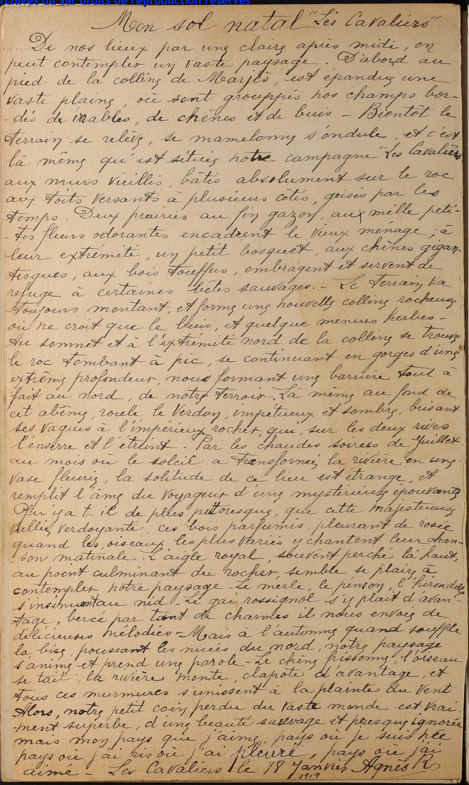 Mon sol natal "Les Cavaliers"
De nos lieux par une claire après midi, on
peut contempler un vaste paysage. D'abord au
pied de la colline de Marjès, est épandue une
vaste plaine, où sont grouppés nos champs bor-
dés de érables, de chênes et de buis – Bientôt le
terrain se relève, se mamelonne s'ondule, et c'est
là même qu'est située notre campagne "Les Cavaliers"
aux murs vieillis, bâtis absolument sur le roc
aux toits versants à plusieurs côtés, grisés par les
temps. Deux prairies au fin gazon, aux mille peti-
tes fleurs odorantes encadrent le vieux menage, à
leur extrémité, un petit bosquet, aux chênes gigan-
tesques, aux bois touffus, ombragent et servent de
refuge à certaines bêtes sauvages. – Le terrain va
toujours montant, et forme une nouvelle colline rocheuse
où ne croit que le buis, et quelque menues herbes –
Au sommet et à l'extrémité nord de la colline se trouve
le roc tombant à pic, se continuant en gorges d'une
extrême profondeur, nous formant une barrière tout à
fait au nord, de notre terroir. La même au fond de
cet abîme, roule le Verdon, impétueux et sombre, brisant
ses vagues à l'impérieux rocher qui, sur les deux rives
l'enserre et l'étreint. Par les chaudes soirées de Juillet
au mois où le soleil a transformée la rivière en une
vase fleurie, la solitude de ce lieu est étrange, et
remplit l'âme du voyageur d'une mystérieuse épouvante
Qu'y a t. il de plus pittoresque, que cette majestueuse
vallée verdoyante, ces bois parfumés, pleurant de rosée
quand les oiseaux les plus variés y chantent leur chan-
son matinale. L'aigle royal, souvent perché là haut,
au point culminant du rocher, semble se plaire à
contempler notre paysage. Le merle, le pinson, l'hirondelle
s'insinuent au nid. Le gai rossignol s'y plait d'avan-
tage, bercé par tant de charmes il nous envoie de
délicieuses mélodies – Mais à l'automne quand souffle
la bise, poussant les nuées du nord, notre paysage
s'anime et prend une parole – Le chêne frissonne, l'oiseau
se tait, la rivière monte, clapote d'avantage, et
tous ces murmures s'unissent à la plainte du vent
Alors, notre petit coin perdu du vaste monde est vrai-
ment superbe, d'une beauté sauvage et presque ignorée
mais mon pays que j'aime, pays où je suis née
pays où j'ai ris où j'ai pleuré, pays où j'ai
aimé – Les Cavaliers le 18 Janvier Agnès R
1919